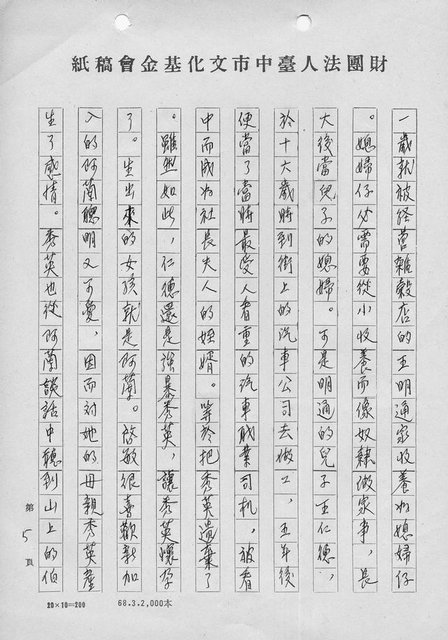 財團法人臺中市文化基金會稿紙
一歲就被經營雜穀店的王明通家收養為媳婦仔
。媳婦仔必需要從小收養而像奴隸做家事,長
大後當兒子的媳婦。可是明通的兒子王仁德,
於十六歲時到街上的汽車公司去做工,五年後
便當了當時最受人看重的汽車職業司机,被看
中而成為社長夫人的姪婿。等於把秀英遺棄了
。雖然如此,仁德還是強暴秀英,讓秀英懷孕
了。生出來的女孩就是阿蘭。啓敏很喜歡新加
入的阿蘭聰明又可愛,因而對她的母親秀英產
生了感情。秀英也從阿蘭談話中聽到山上的伯
第5頁
20×10=200
68.3.2,000本